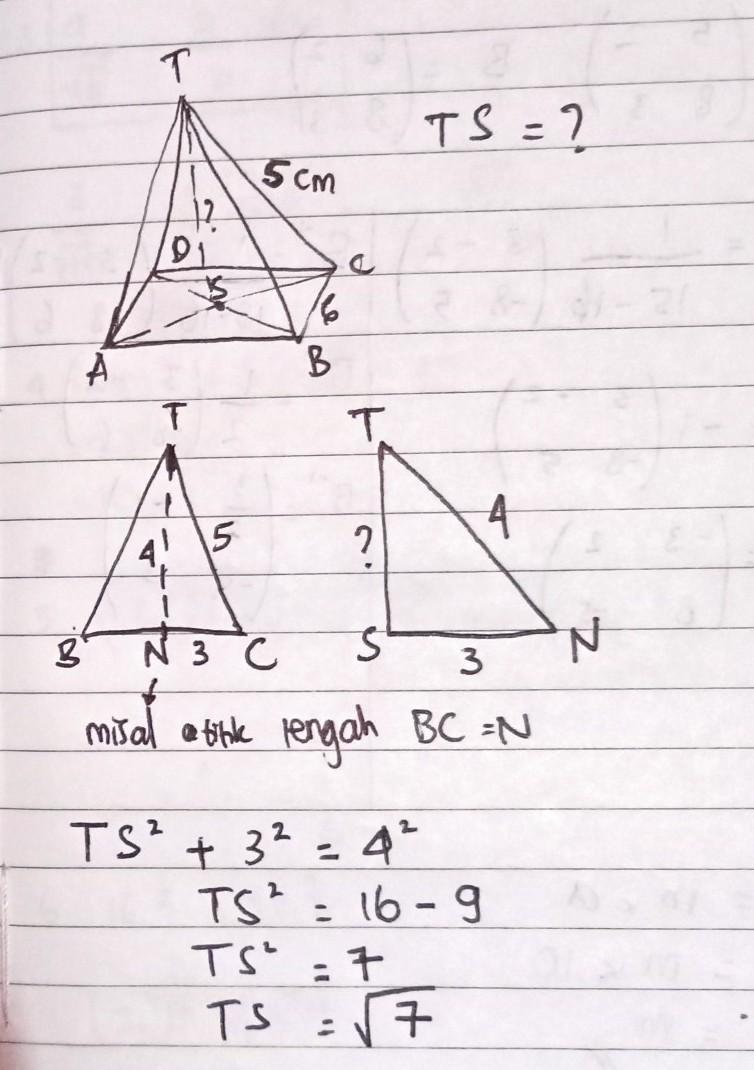 T
TS = ?
5 cm
?
D
C
S
6
A
B
T
T
4
5
?
4
B
N
3
C
S
3
N
misal titik tengah BC = N
TS² + 3² = 4²
TS² = 16 - 9
TS² = 7
TS = √7